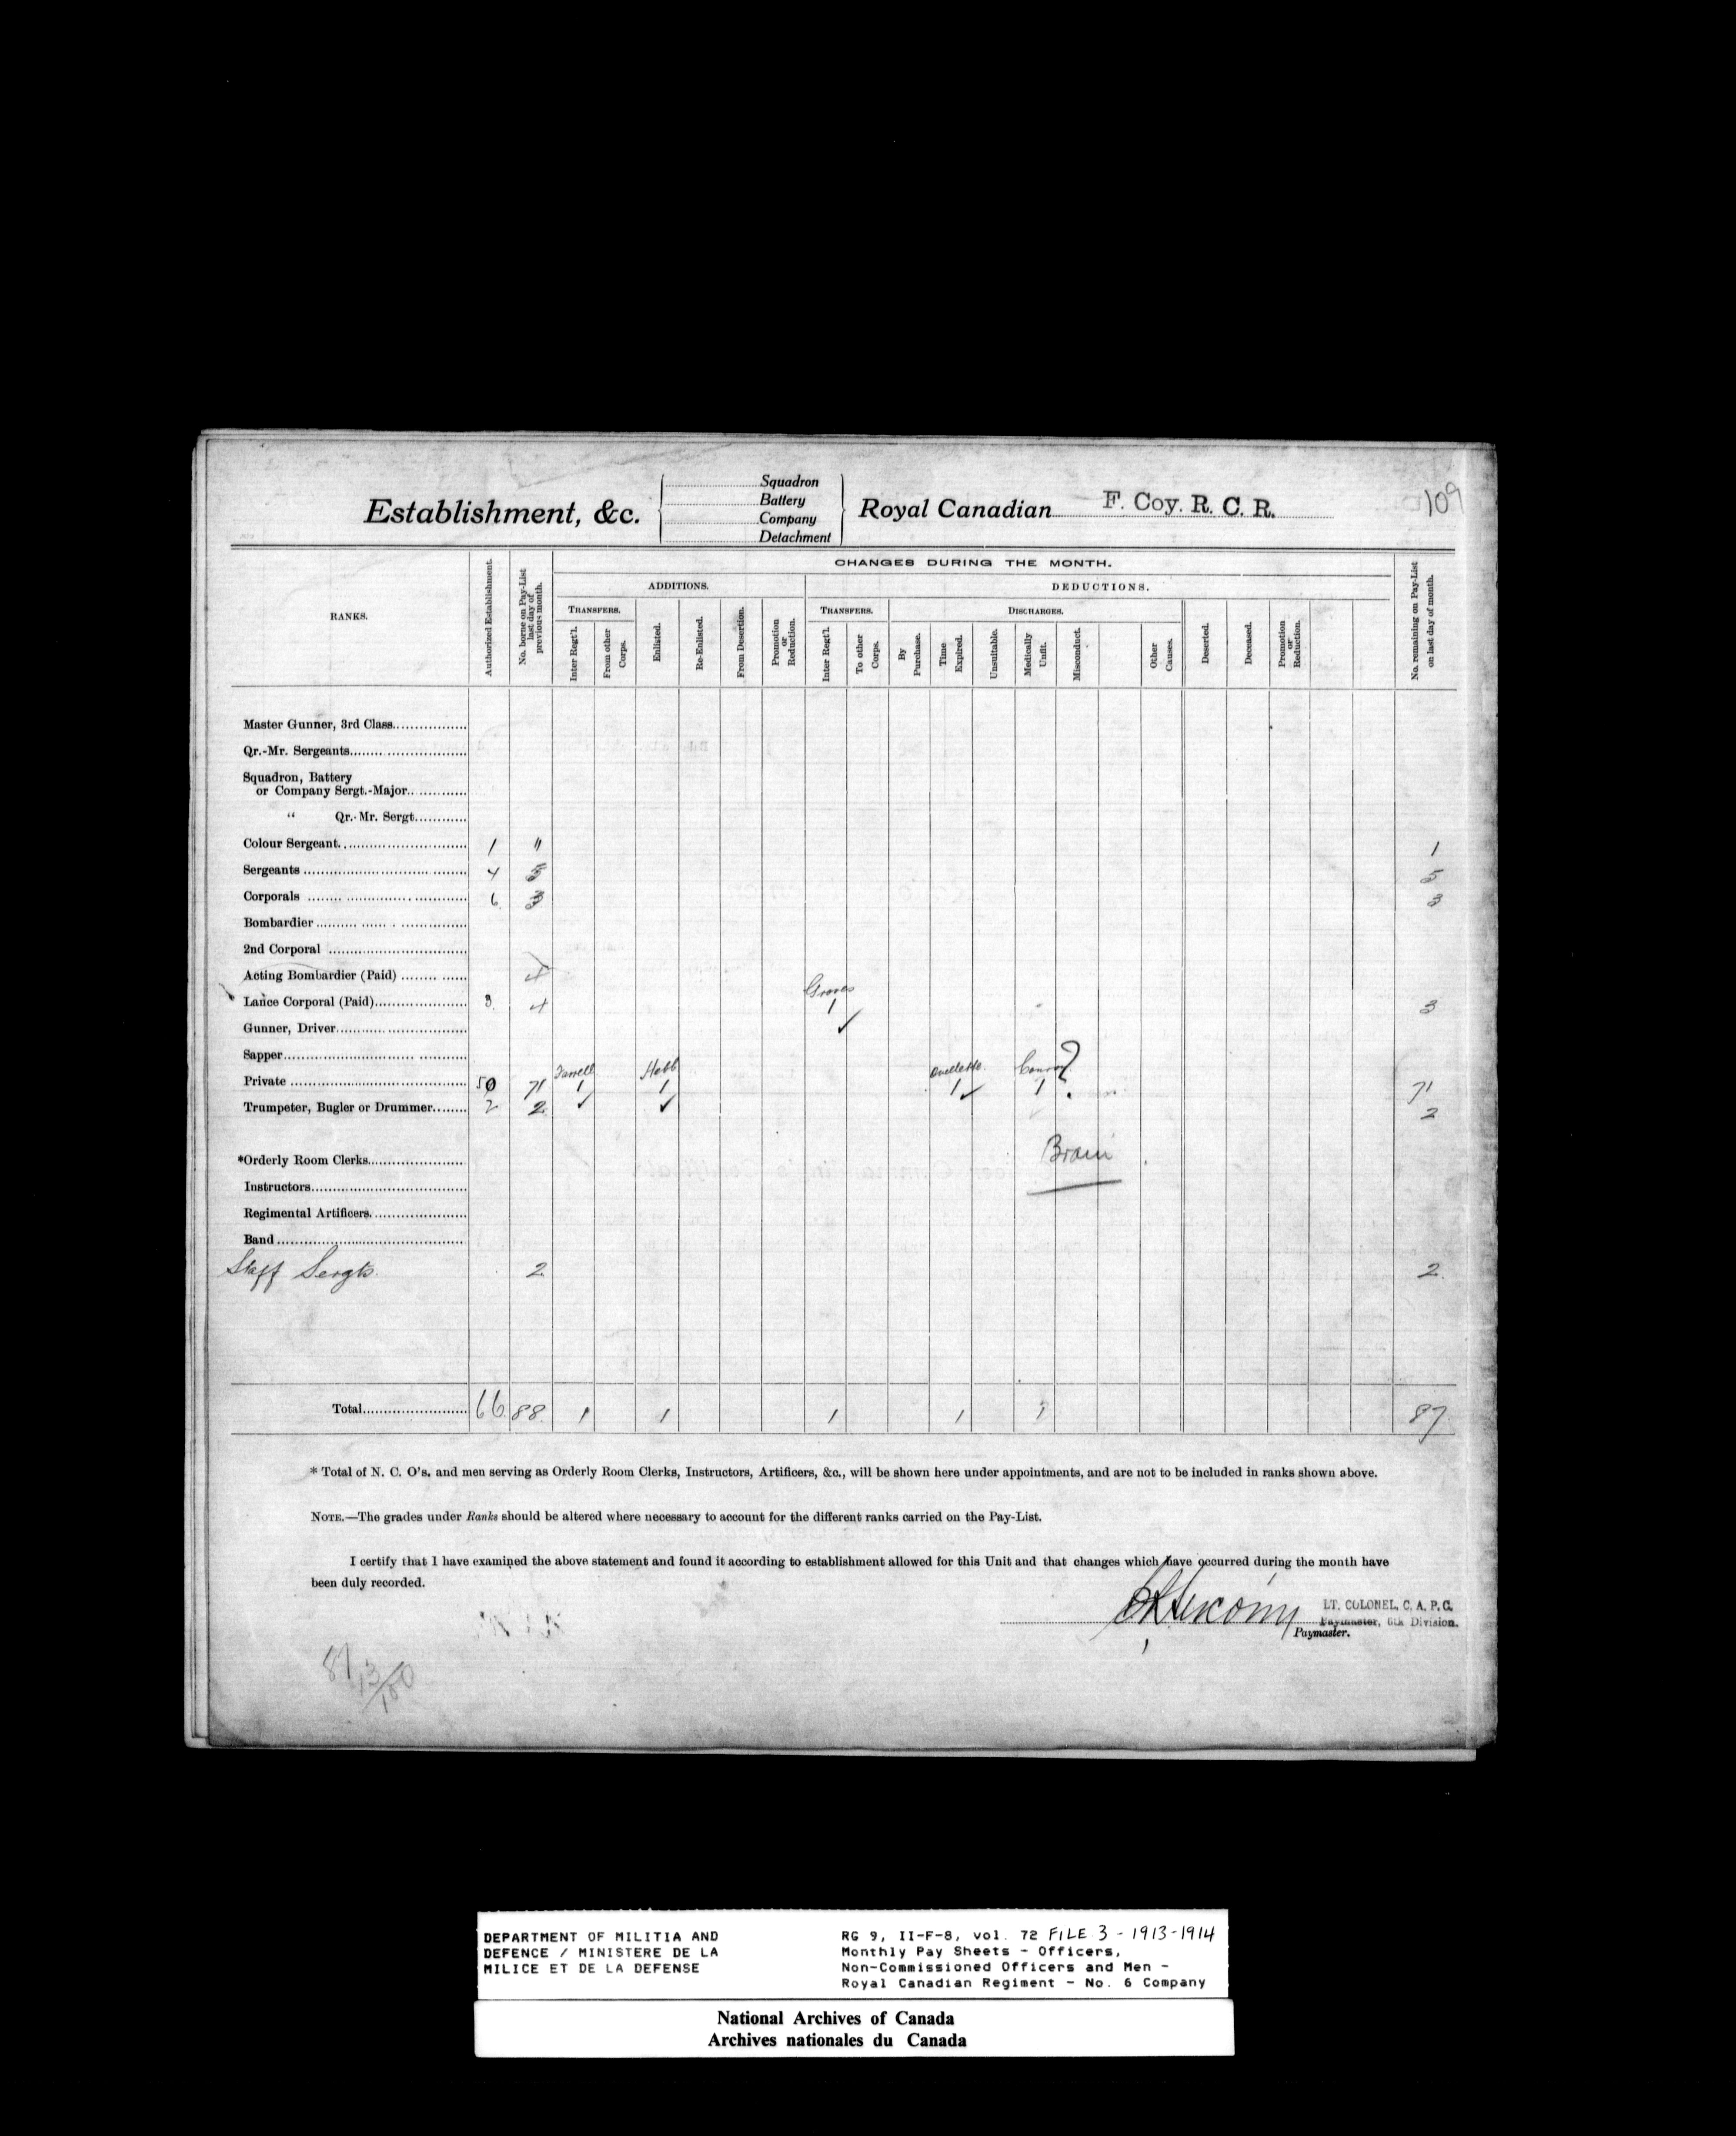 Establishment, &c.
Squadron
Battery
Company
Detachment
Royal Canadian F. Coy. R. C. R.
109
CHANGES DURING THE MONTH.
ADDITIONS.
DEDUCTIONS.
TRANSFERS.
TRANSFERS.
DISCHARGES.
RANKS.
Authorized Establishment.
No. borne on Pay-List last day of previous month.
Inter Regt'l.
From other Corps.
Enlisted.
Re-Enlisted.
From Desertion.
Promotion or Reduction.
Inter Regt'l.
To other Corps.
By Purchase.
Time Expired.
Unsuitable.
Medically Unfit.
Misconduct.
Other Causes.
Deserted.
Deceased.
Promotion or Reduction.
No. remaining on Pay-List on last day of month.
Master Gunner, 3rd Class
Qr.-Mr. Sergeants
Squadron, Battery
or Company Sergt.-Major
" Qr.-Mr. Sergt.
Colour Sergeant 1 " 1
Sergeants 4 5 5
Corporals 6 3 3
Bombardier
2nd Corporal
Acting Bombardier (Paid) 4
Groves
Lance Corporal (Paid) 3 4 1 3
Gunner, Driver ✓
Sapper
Farrell Hebb Ouellette Conroy ?
Private 50 71 1 1 1 ✓ 1 71
Trumpeter, Bugler or Drummer 2 2 ✓ ✓ 2
Brain
*Orderly Room Clerks
Instructors
Regimental Artificers
Band
Staff Sergts. 2 2
Total 66 88 1 1 1 1 1 87
* Total of N. C. O's. and men serving as Orderly Room Clerks, Instructors, Artificers, &c., will be shown here under appointments, and are not to be included in ranks shown above.
NOTE.—The grades under Ranks should be altered where necessary to account for the different ranks carried on the Pay-List.
I certify that I have examined the above statement and found it according to establishment allowed for this Unit and that changes which have occurred during the month have
been duly recorded.
LT. COLONEL, C. A. P. C.
Paymaster, 6th Division.
Paymaster.
87
13
100
DEPARTMENT OF MILITIA AND
DEFENCE / MINISTERE DE LA
MILICE ET DE LA DEFENSE
RG 9, II-F-8, vol. 72 FILE 3 - 1913-1914
Monthly Pay Sheets - Officers,
Non-Commissioned Officers and Men -
Royal Canadian Regiment - No. 6 Company
National Archives of Canada
Archives nationales du Canada